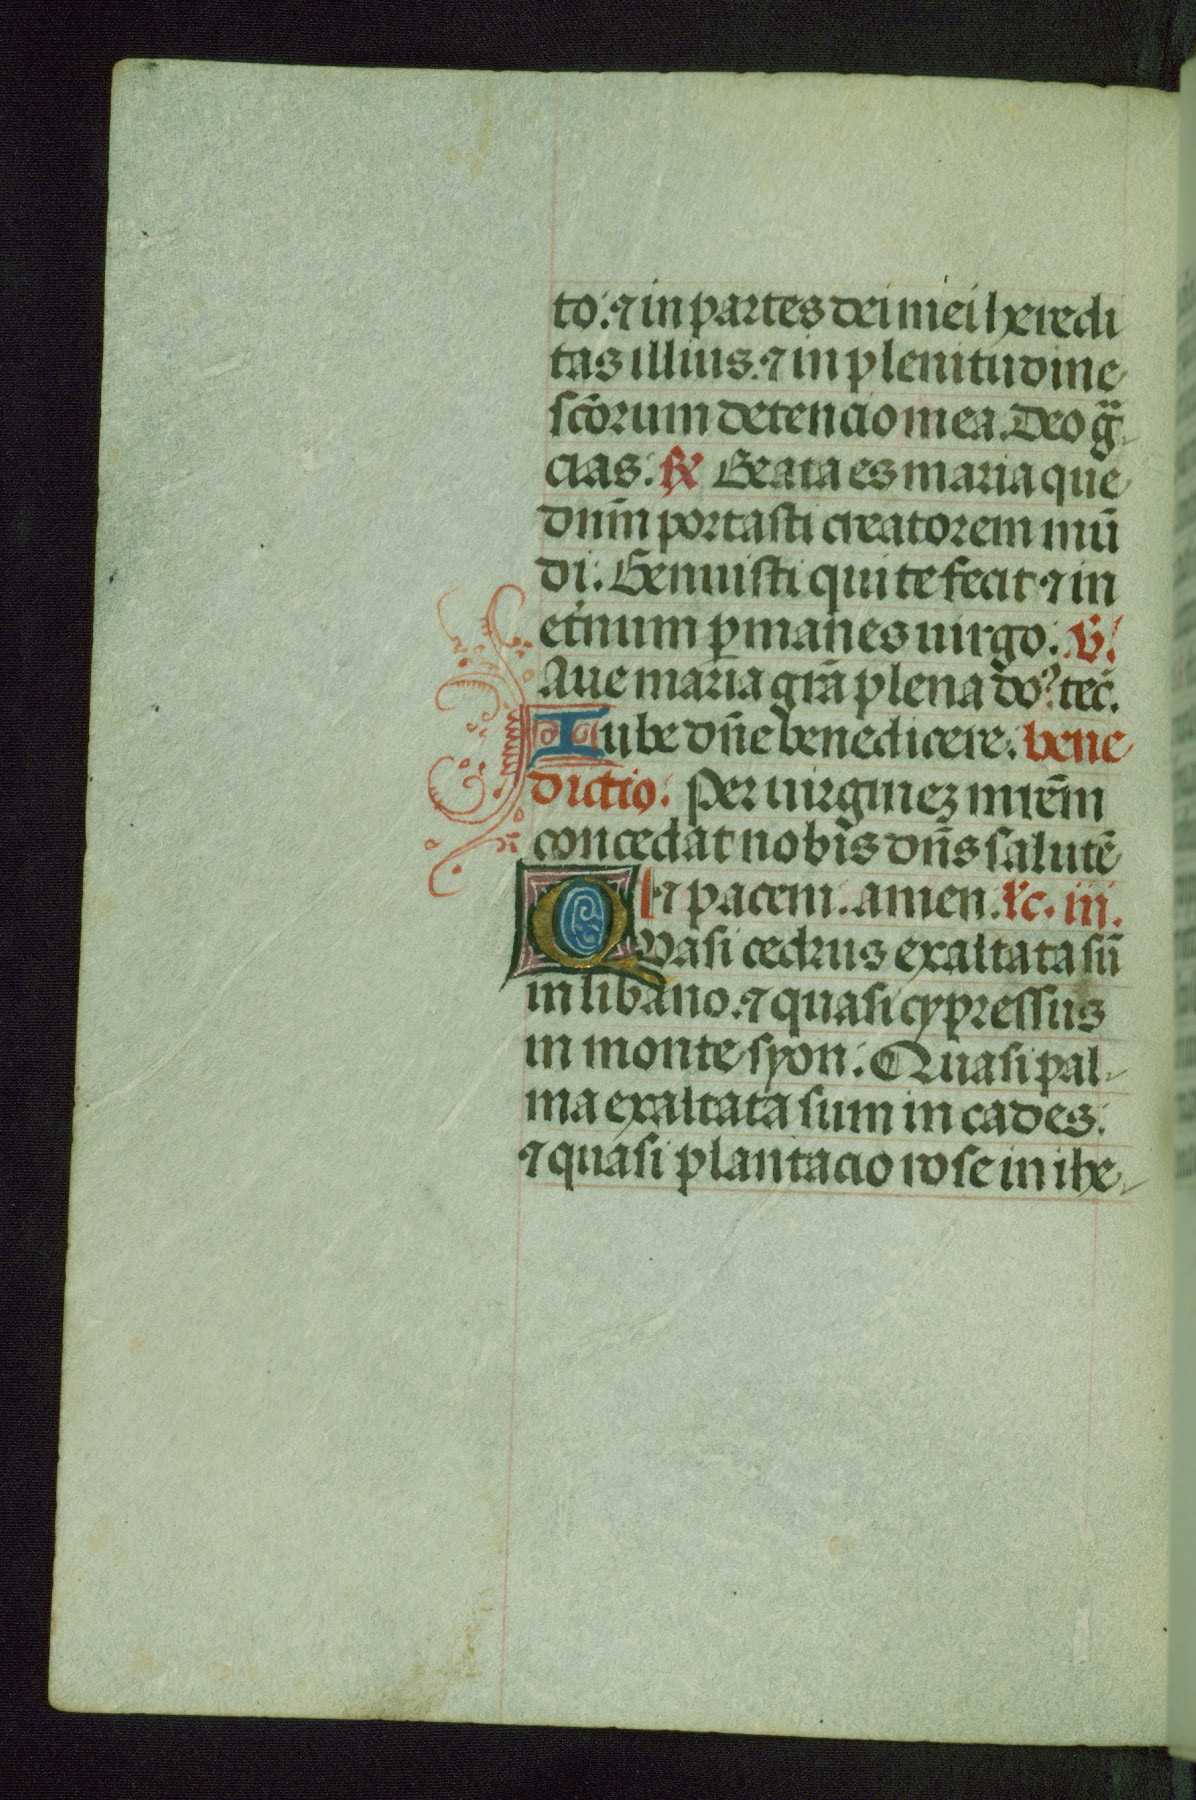 to: ⁊ in partes dei mei heredi
tas illius. ⁊ in plenitudine
sc̄orum detencio mea. Deo gr̄a
cias. ℟ Beata es maria que
dn̄m portasti creatorem mū
di: Genuisti qui te fecit ⁊ in
et̄num p̄manes uirgo. ℣.
Aue maria gr̄a plena do⁹. tec̄.
Iube dn̄e benedicere. bene
dictio. Per uirginez mr̄em
concedat nobis dn̄s salutē
⁊ pacem. amen. lc̄. iii.
Quasi cedrus exaltata sū
in libano. ⁊ quasi cypressus
in monte syon. Quasi pal-
ma exaltata sum in cades.
⁊ quasi plantacio rose in ihe-